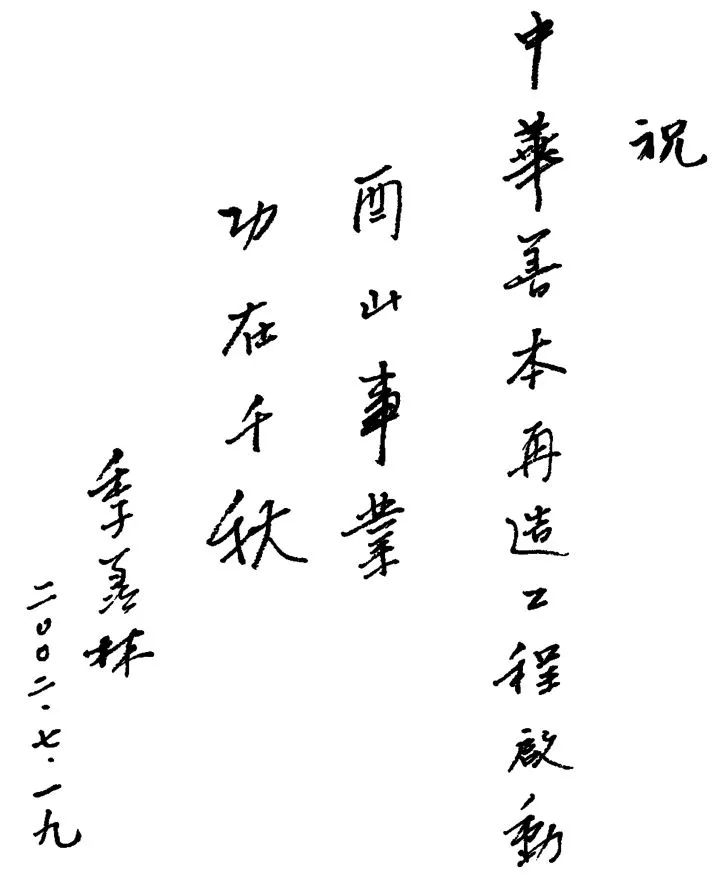 祝
中華善本再造工程啟動
酉山事業
功在千秋
季羨林
二00二·七·一九